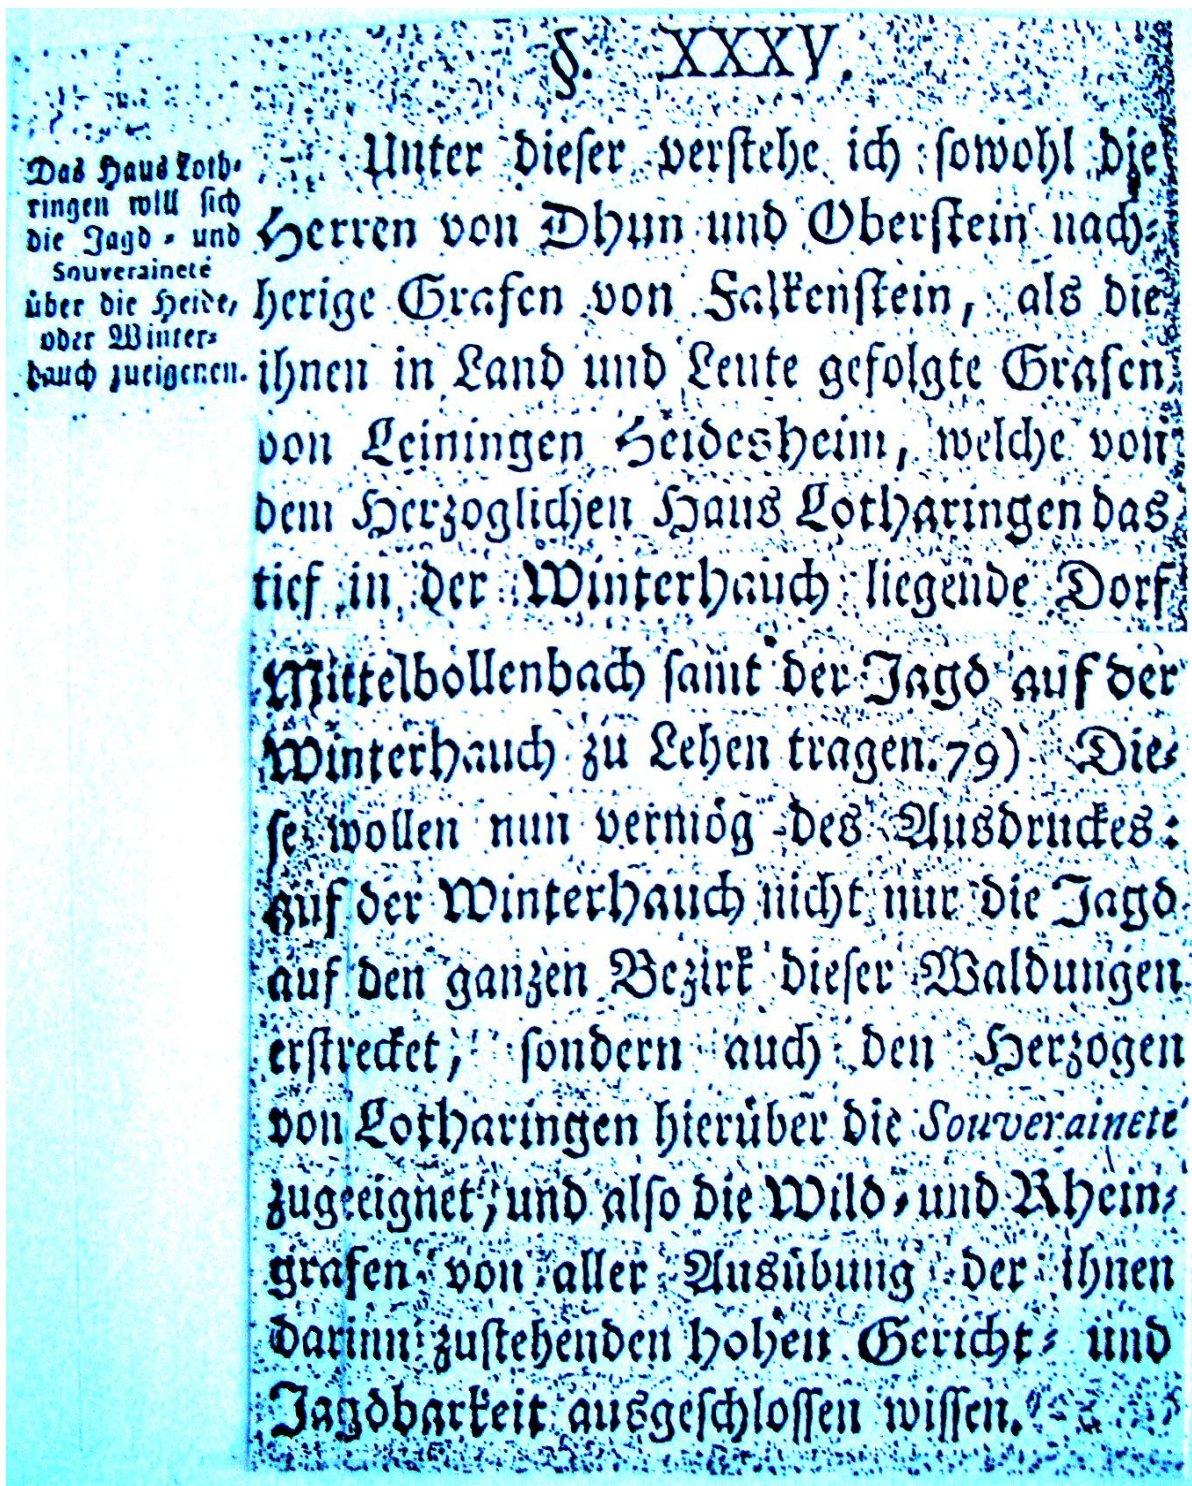 §. XXXV.
Das Haus Loth-
ringen will sich
die Jagd- und
Souveraineté
über die Heide,
oder Winter-
hauch zueigenen.
Unter dieser verstehe ich sowohl die
Herren von Dhun und Oberstein nach-
herige Grafen von Falkenstein, als die
ihnen in Land und Leute gefolgte Grafen
von Leiningen Heidesheim, welche von
dem Herzoglichen Haus Lotharingen das
tief in der Winterhauch liegende Dorf
Mittelbollenbach samt der Jagd auf der
Winterhauch zu Lehen tragen. 79) Die-
se wollen nun vermög des Ausdruckes:
auf der Winterhauch nicht nur die Jagd
auf den ganzen Bezirk dieser Waldungen
erstrecket, sondern auch den Herzogen
von Lotharingen hierüber die Souveraineté
zugeeignet, und also die Wild- und Rhein-
grafen von aller Ausübung der ihnen
darinn zustehenden hohen Gericht- und
Jagdbarkeit ausgeschlossen wissen.